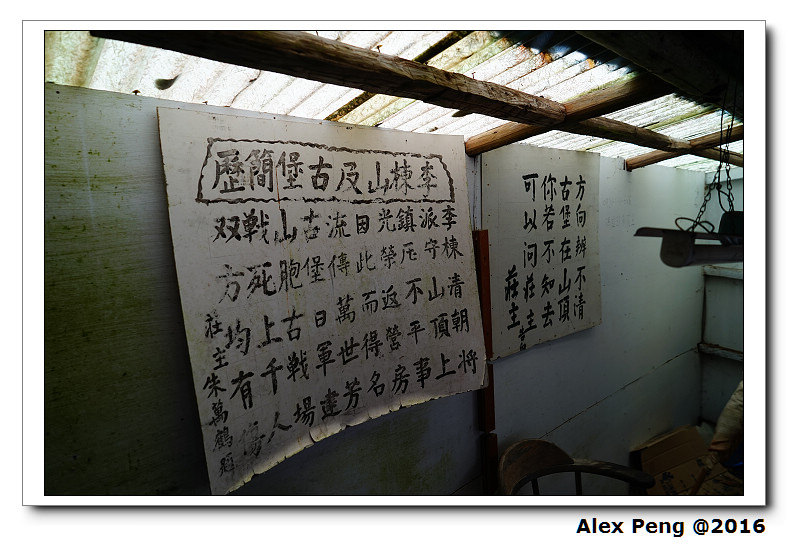 李棟山及古堡簡歷
李棟清朝將
派守山頂上
鎮压不平事
光榮返營房
因此而得名
流傳萬世芳
古堡日軍建
山胞古戰場
戰死上千人
双方均有傷
荘主朱萬鶴題
方向辨不清
古堡在山頂
你若不知去
可以問荘主
荘主言
Alex Peng @2016